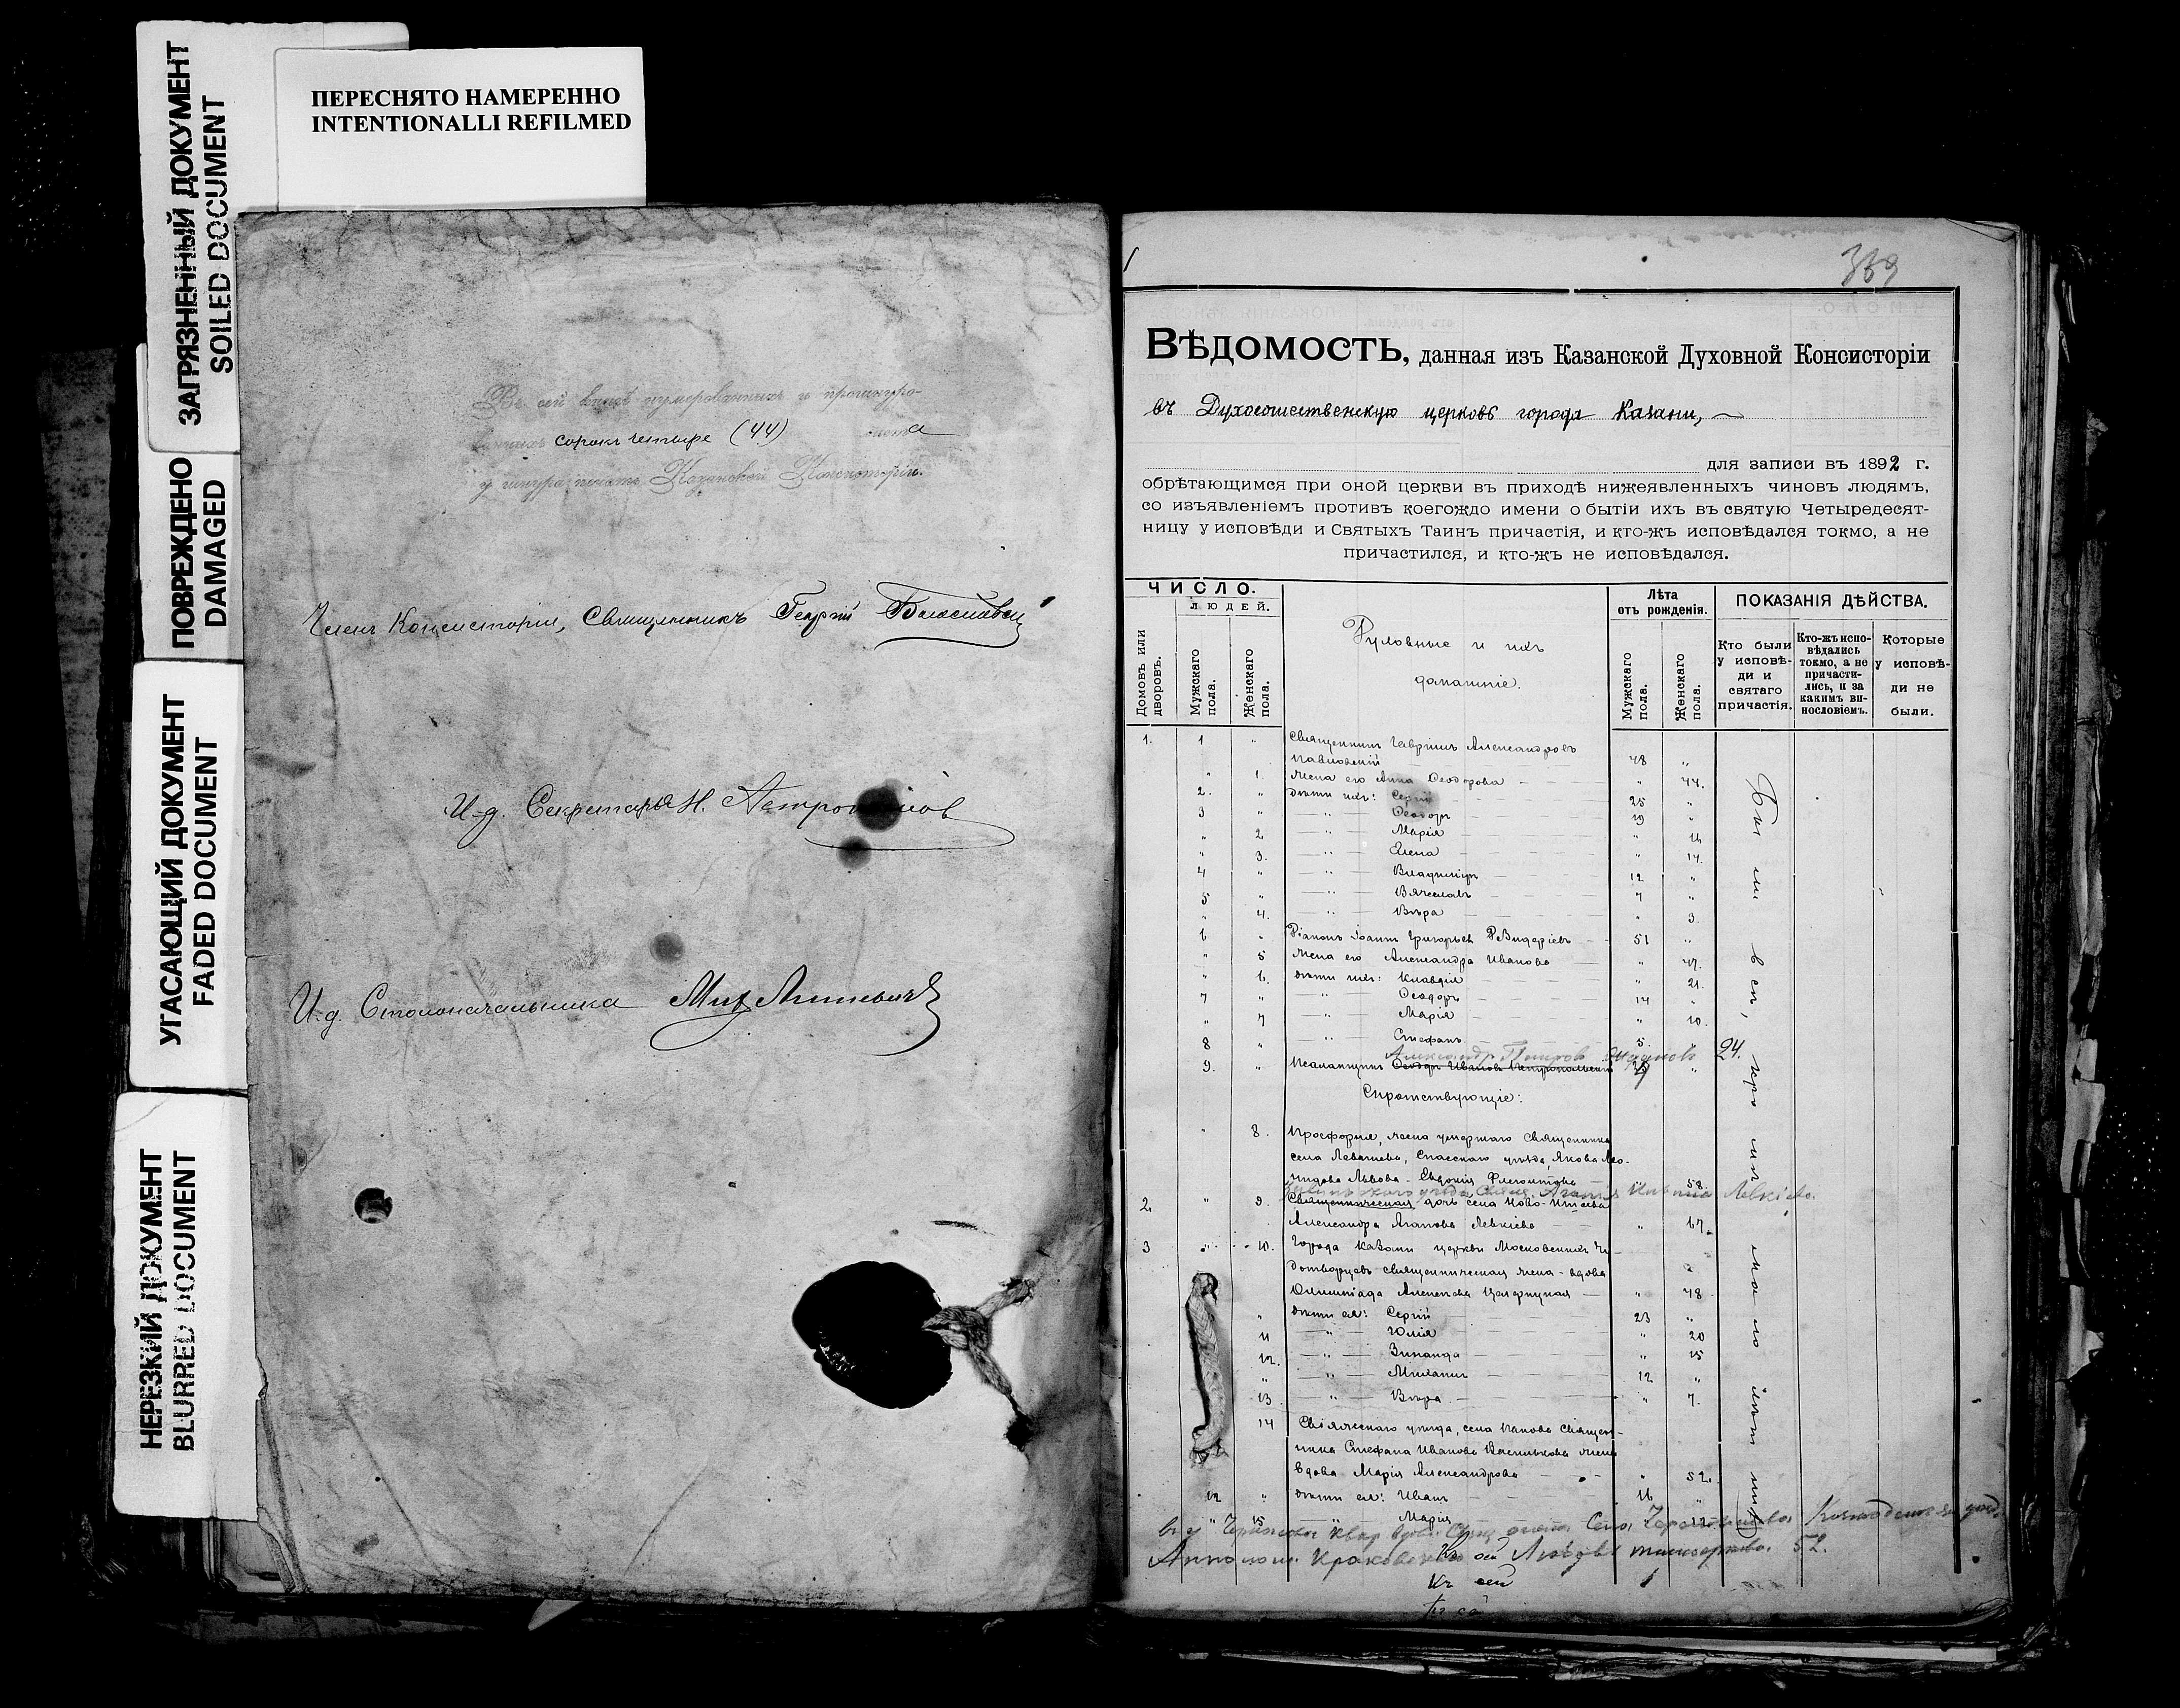 ПЕРЕСНЯТО НАМЕРЕННО
INTENTIONALLI REFILMED
ЗАГРЯЗНЕННЫЙ ДОКУМЕНТ
SOILED DOCUMENT
ПОВРЕЖДЕНО
DAMAGED
УГАСАЮЩИЙ ДОКУМЕНТ
FADED DOCUMENT
НЕРЕЗКИЙ ДОКУМЕНТ
BLURRED DOCUMENT
Въ сей книгѣ нумерованныхъ и прошнуро-
ванныхъ сорокъ четыре (44) листа
у шнура печать Казанской Консисторіи.
Членъ Консисторіи, Священникъ Георгій Богословскій
И. д. Секретаря Н.
И. д. Столоначальника
Вѣдомость, данная изъ Казанской Духовной Консисторіи
въ Духосошественскую церковь города Казани,
для записи въ 1892 г.
обрѣтающимся при оной церкви въ приходѣ нижеявленныхъ чиновъ людямъ,
со изъявленіемъ противъ коегождо имени о бытіи ихъ въ святую Четыредесят-
ницу у исповѣди и Святыхъ Таинъ причастія, и кто-жъ исповѣдался токмо, а не
причастился, и кто-жъ не исповѣдался.
ЧИСЛО.
ЛЮДЕЙ.
Домовъ или дворовъ.
Мужскаго пола.
Женскаго пола.
Духовные и ихъ
домашніе.
Лѣта
отъ рожденія.
Мужскаго пола.
Женскаго пола.
ПОКАЗАНІЯ ДѢЙСТВА.
Кто были у исповѣ-ди и святаго причастія.
Кто-жъ испо-вѣдались токмо, а не причасти-лись, и за какимъ ви-нословіемъ.
Которые у исповѣ-ди не были.
1. 1 " Священникъ Гавріилъ Александровъ
48 "
" 1. Жена его Анна Ѳеодорова " 44.
2. " Дѣти ихъ: Сергій 25 "
3 " Ѳеодоръ 19 "
" 2. Марія "
" 3. Елена " 14.
4 " Владиміръ 12 "
5 " Вячеславъ 7 "
" 4. Вѣра " 3.
6 " Діаконъ Іоаннъ Григорьевъ 51 "
" 5 Жена его Александра Иванова " 47.
" 6. Дѣти ихъ: Клавдія " 21.
7 " Ѳеодоръ 14 "
" 7 Марія " 10.
8 " Стефанъ 5. "
Александръ Петровъ 24.
9. " Псаломщикъ Ѳеодоръ Ивановъ
Сиротствующіе:
" 8. Просфорня, жена умершаго священника
села Левашева, Спасскаго уѣзда, Якова Лео-
нидова Львова - Евдокія " 58.
2. " 9. Священническая дочь села Ново-
Александра Агапова Левкіева " 67.
3 " 10. Города Казани церкви Московскихъ Чу-
дотворцевъ священническая жена - вдова
Олимпіада Алексѣева " 48
" Дѣти ея: Сергій 23 "
11 Юлія " 20
12. Зинаида " 15
" Михаилъ 12 "
13 Вѣра " 7.
14 Свіяжскаго уѣзда, села священ-
ника Стефана Иванова Васильева жена
вдова Марія Александрова " 52.
12 " Дѣти ея: Иванъ 16 "
" 15 Марія " 12
Были вси, кромѣ малолѣтнихъ